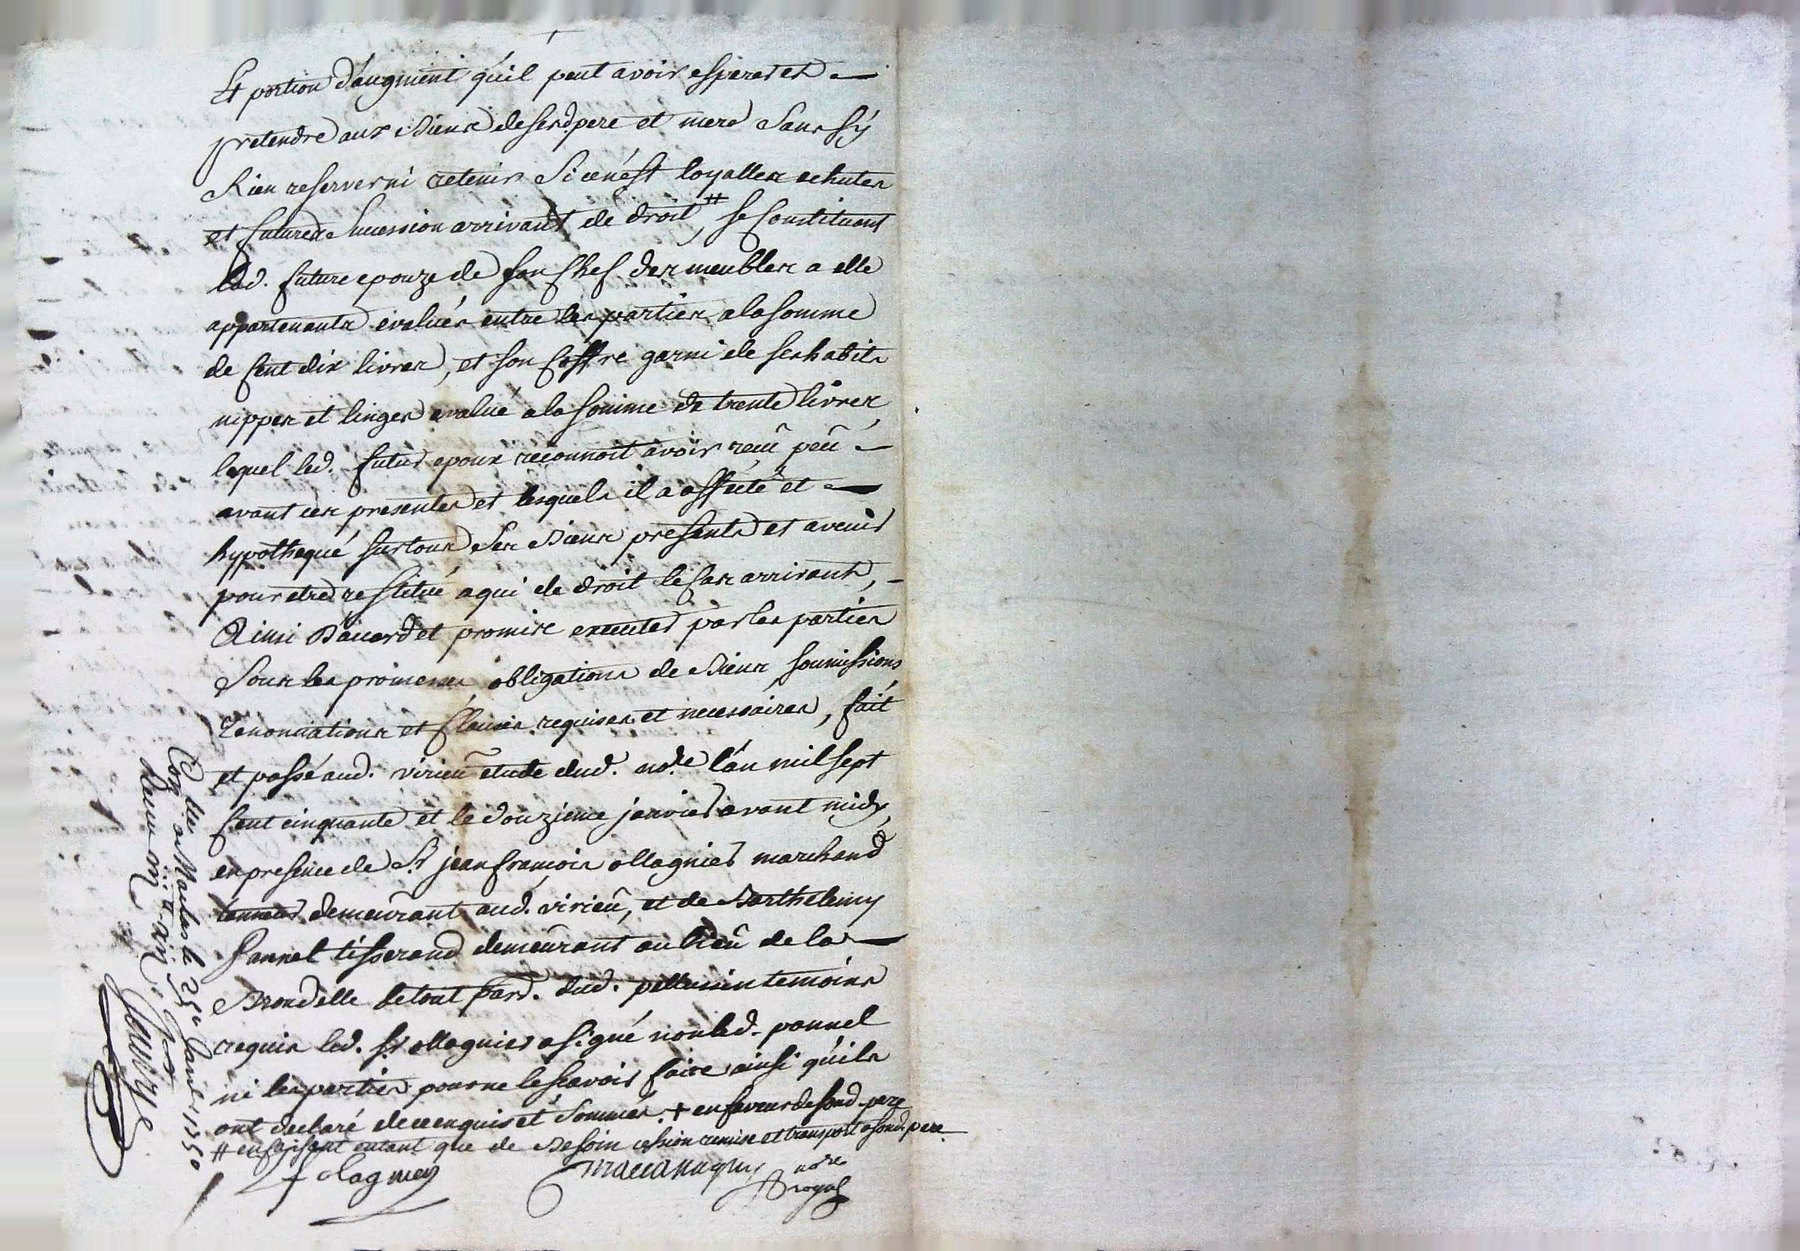 Et portion d'augment qu'il peut avoir esperer et
pretendre aux Biens desesd. pere et mere sans sý
Rien reserver ni retenir si ce n'est loyalles echutes
et future succession arrivant de droit #, se constituant
lad. future epouze de son chef des meubles a elle
appartenants evalués entre les parties a la somme
de cent dix livres, et son coffre garni de ses habits
nippes et linges evalué a la somme de trente livres
lequel led. futur epoux reconnoit avoir reçû peû
avant ces presentes et lesquels il a affecté et
hypothequé sur tous ses Biens presents et avenir
pour etre restitué a qui de droit le cas arrivant,
Ainsi d'accord et promis executer par les parties
sous les promesses obligations de Biens soumissions
renonciations et clauses requises et necessaires, fait
et passé aud. virieû etude dud. no.re l'an mil sept
cent cinquante et le douzieme janvier avant midy
en presence de Sr jean francois ollagnier marchand
tanneur demeûrant aud. virieû, et de Barthelemy
pannel tisserand demeûrant au lieû de la
Brondelle de tout par. dud. pellussin temoins
requis led. Sr ollagnier a signé non led. pannel
ni les parties pour ne le sçavoir faire ainsi qu'ils
ont declaré de ce enquis et sommés. + en faveur de sond. pere
# en faisant entant que de Besoin cession remise et transport a sond. pere
f olagnier
no.re royal
Co.llé a Maclas le 25e Janvier 1750
Reçu